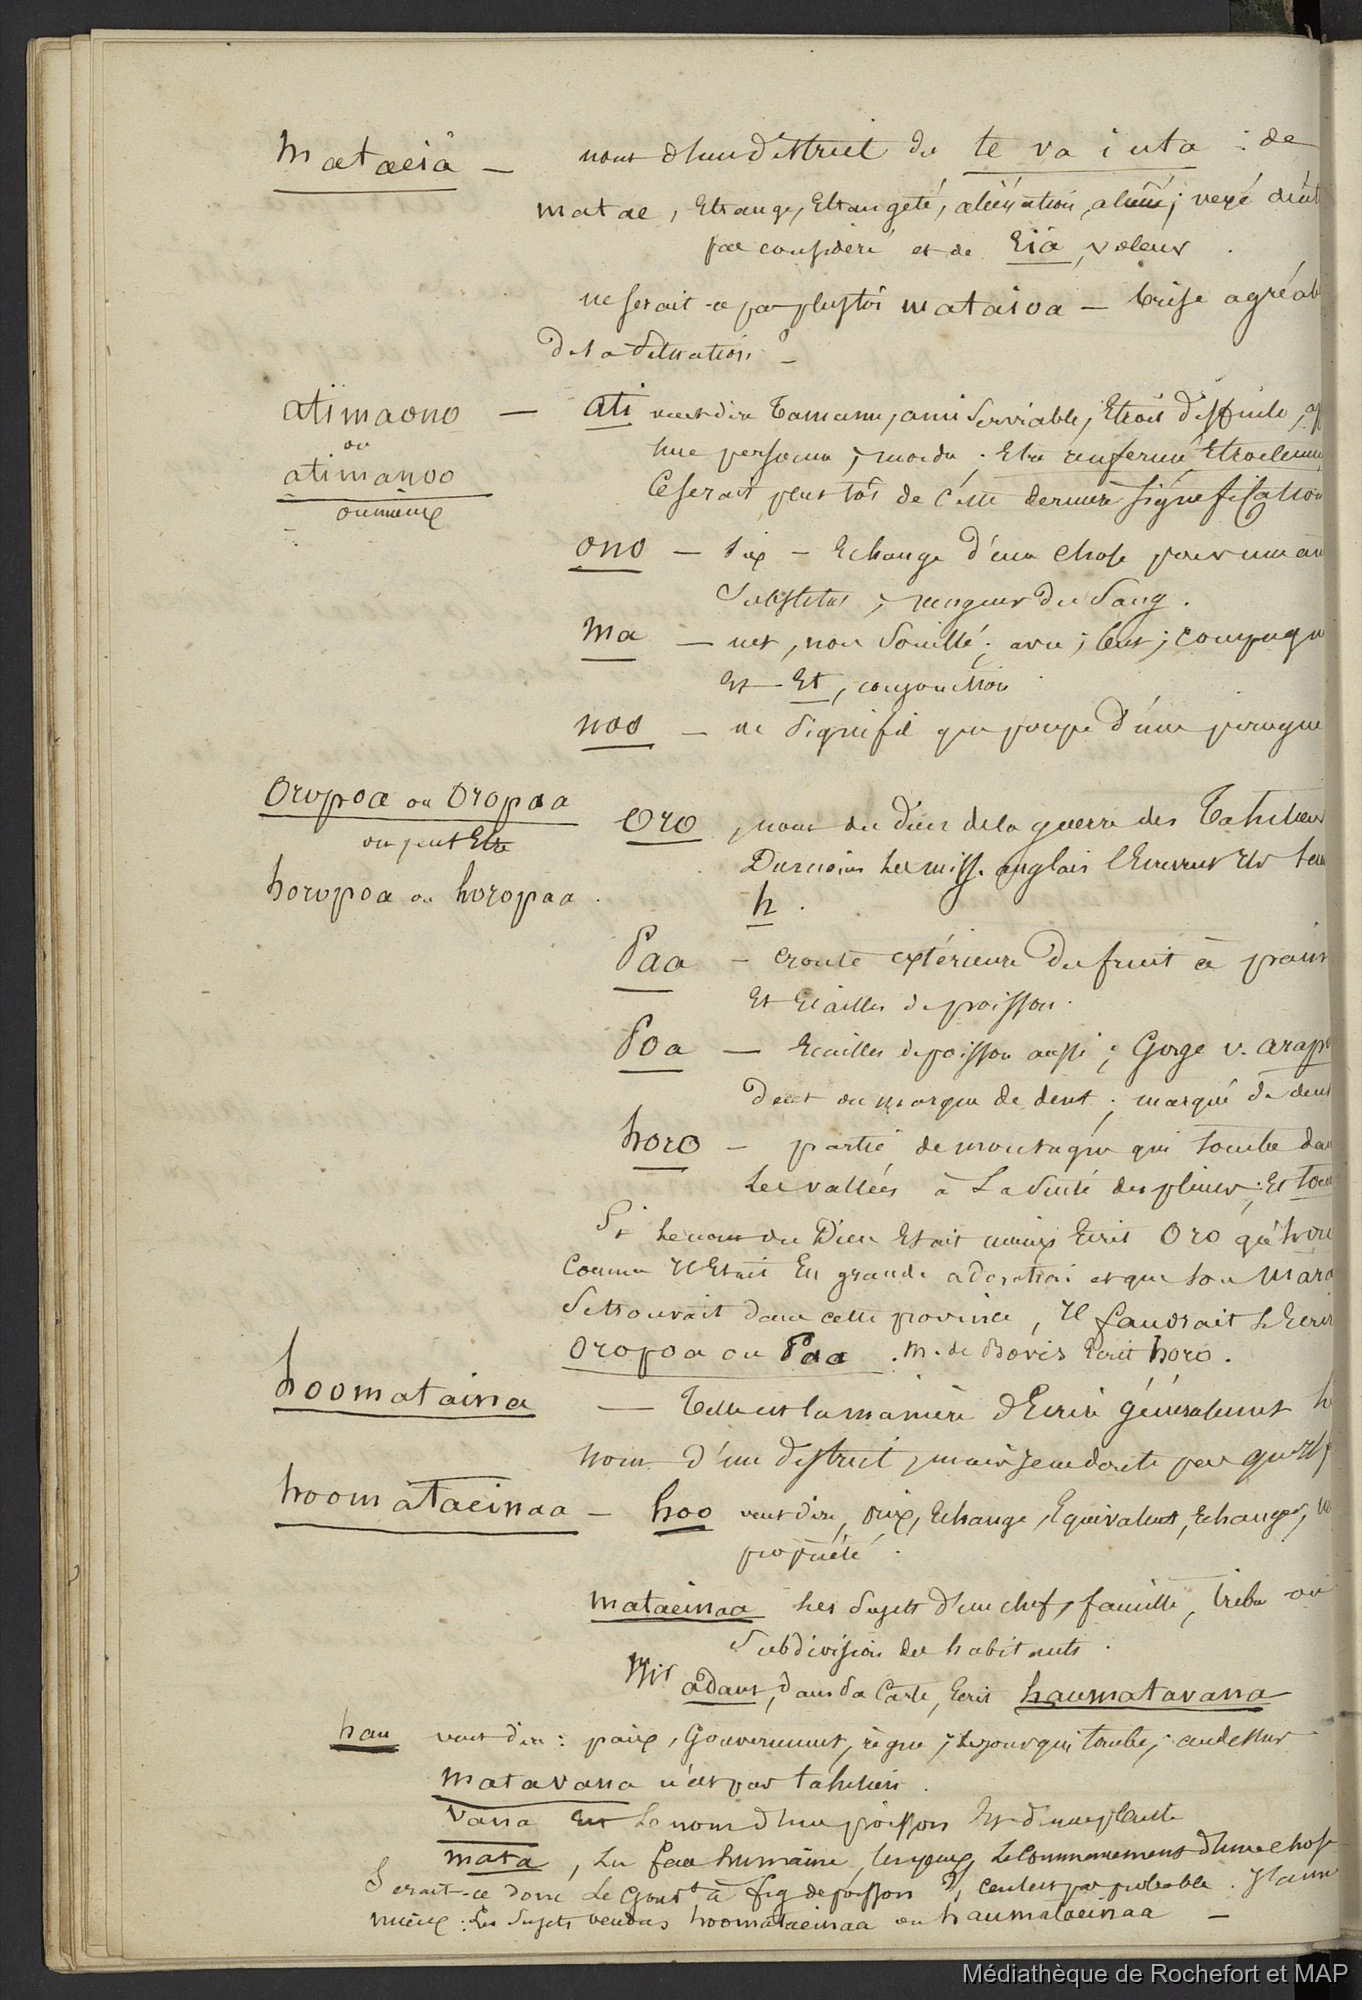 mataeiâ — nom d'un district du te va i uta : de
matae, Etrange, Etrangeté, aliénation, aliéné; vexé
pas considéré et de Eiâ, voleur.
ne serait-ce pas plustôt mataioa — brise agréab
de la situation ? —
atimaono — ati veut dire Tamanu, ami serviable, Etroit difficile,
ou
une personne; mordu; Etre renfermé Etroitemen
atimanoo
Ce serait plustôt de cette dernière signification
ou mieux
ono — six — Echange d'une chose pour une au
Substitut; vengeur du Sang.
ma — net, non souillé; avec; but; compagn
Et — Et, conjonction
noo — ne signifie que poupe d'une pirogue
Oropoa ou Oropaa
Oro, nom du dieu de la guerre des Tahitiens
ou peut Etre
Du moins les miss. anglais l'Ecrivent Ils sans
horopoa ou horopaa.
h.
Paa — croute extérieure du fruit à pain
Et Ecailles de poisson.
Poa — Ecailles de poisson aussi; Gorge v. arapo
Dent ou marque de dent; marqué de dent
horo — partie de montagne qui tombe dans
les vallées à la suite des pluies; Et
Si le nom du Dieu Etait mieux Ecrit Oro qu'horo
Comme Il Etait En grande adoration et que son mara
se trouvait dans cette province, Il faudrait l'Ecrire
Oropoa ou Paa. M. de Bovis Ecrit horo.
hoomataina — Telle est la manière d'Ecrire généralement le
nom d'un district, mais je ne doute pas qu'Il
hoomataeinaa — hoo veut dire, prix, Echange, Equivalent, Echanger,
propriété.
mataeinaa les sujets d'un chef, famille, tribu ou
subdivision des habitants.
Mr adam, dans sa Carte, Ecrit haumatavana
hau veut dire: paix, Gouvernement, règne; le jour qui tombe; au dessus
matavana n'est pas tahitien.
vana Est le nom d'un poisson Et d'une plante
mata, la face humaine, les yeux, le Commencement d'une chose
Serait-ce donc le Gouvt à fig de poisson ?, ce n'est pas probable. J'aime
mieux: les sujets vendus hoomataeinaa ou haumataeinaa —
Médiathèque de Rochefort et MAP